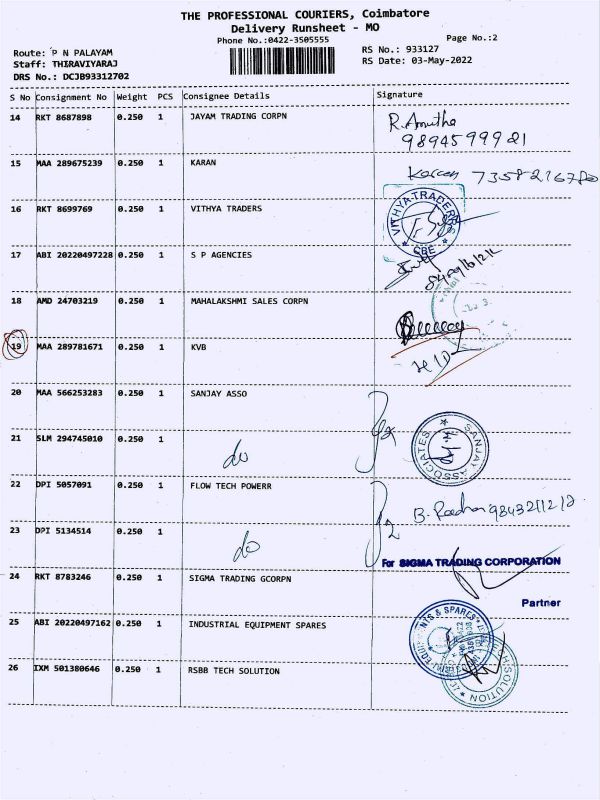 THE PROFESSIONAL COURIERS, Coimbatore
Delivery Runsheet - MO
Phone No.:0422-3505555
Page No.:2
Route: P N PALAYAM
Staff: THIRAVIYARAJ
DRS No.: DCJB93312702
RS No.: 933127
RS Date: 03-May-2022
S No Consignment No Weight PCS Consignee Details Signature
14 RKT 8687898 0.250 1 JAYAM TRADING CORPN R. Amutha
9894599921
15 MAA 289675239 0.250 1 KARAN Karan 7358216780
16 RKT 8699769 0.250 1 VITHYA TRADERS VITHYA TRADERS
CBE
17 ABI 20220497228 0.250 1 S P AGENCIES
18 AMD 24703219 0.250 1 MAHALAKSHMI SALES CORPN
19 MAA 289781671 0.250 1 KVB
20 MAA 566253283 0.250 1 SANJAY ASSO SANJAY ASSOCIATES
21 SLM 294745010 0.250 1 do
22 DPI 5057091 0.250 1 FLOW TECH POWERR B.
23 DPI 5134514 0.250 1 do
For SIGMA TRADING CORPORATION
24 RKT 8783246 0.250 1 SIGMA TRADING GCORPN
Partner
25 ABI 20220497162 0.250 1 INDUSTRIAL EQUIPMENT SPARES
26 IXM 501380646 0.250 1 RSBB TECH SOLUTION